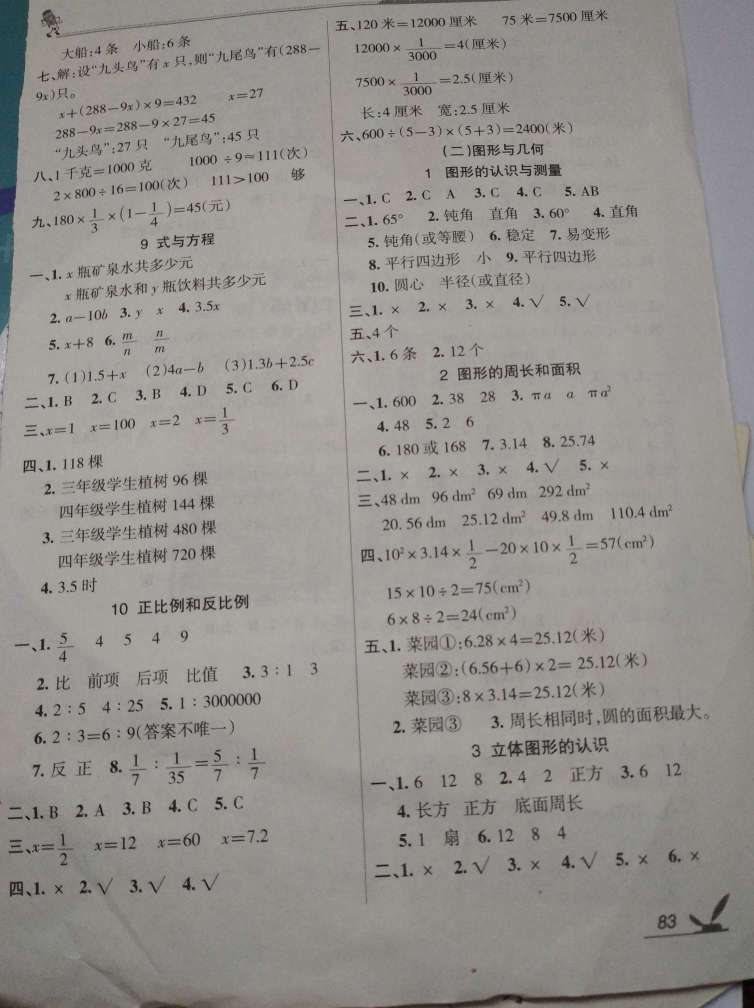 大船:4 条 小船:6 条
七、解:设“九头鸟”有 x 只,则“九尾鸟”有(288-
9x)只。
x+(288-9x)×9=432 x=27
288-9x=288-9×27=45
“九头鸟”:27 只 “九尾鸟”:45 只
八、1 千克=1000 克 1000÷9≈111(次)
2×800÷16=100(次) 111>100 够
九、180×1/3×(1-1/4)=45(元)
9 式与方程
一、1. x 瓶矿泉水共多少元
x 瓶矿泉水和 y 瓶饮料共多少元
2. a-10b 3. y x 4. 3.5x
5. x+8 6. m/n n/m
7. (1)1.5+x (2)4a-b (3)1.3b+2.5c
二、1. B 2. C 3. B 4. D 5. C 6. D
三、x=1 x=100 x=2 x=1/3
四、1. 118 棵
2. 三年级学生植树 96 棵
四年级学生植树 144 棵
3. 三年级学生植树 480 棵
四年级学生植树 720 棵
4. 3.5 时
10 正比例和反比例
一、1. 5/4 4 5 4 9
2. 比 前项 后项 比值 3. 3∶1 3
4. 2∶5 4∶25 5. 1∶3000000
6. 2∶3=6∶9(答案不唯一)
7. 反 正 8. 1/7∶1/35=5/7∶1/7
二、1. B 2. A 3. B 4. C 5. C
三、x=1/2 x=12 x=60 x=7.2
四、1. × 2. √ 3. √ 4. √
五、120 米=12000 厘米 75 米=7500 厘米
12000×1/3000=4(厘米)
7500×1/3000=2.5(厘米)
长:4 厘米 宽:2.5 厘米
六、600÷(5-3)×(5+3)=2400(米)
(二)图形与几何
1 图形的认识与测量
一、1. C 2. C A 3. C 4. C 5. AB
二、1. 65° 2. 钝角 直角 3. 60° 4. 直角
5. 钝角(或等腰) 6. 稳定 7. 易变形
8. 平行四边形 小 9. 平行四边形
10. 圆心 半径(或直径)
三、1. × 2. × 3. × 4. √ 5. √
五、4 个
六、1. 6 条 2. 12 个
2 图形的周长和面积
一、1. 600 2. 38 28 3. πa a πa²
4. 48 5. 2 6
6. 180 或 168 7. 3.14 8. 25.74
二、1. × 2. × 3. × 4. √ 5. ×
三、48 dm 96 dm² 69 dm 292 dm²
20.56 dm 25.12 dm² 49.8 dm 110.4 dm²
四、10²×3.14×1/2-20×10×1/2=57(cm²)
15×10÷2=75(cm²)
6×8÷2=24(cm²)
五、1. 菜园①:6.28×4=25.12(米)
菜园②:(6.56+6)×2=25.12(米)
菜园③:8×3.14=25.12(米)
2. 菜园③ 3. 周长相同时,圆的面积最大。
3 立体图形的认识
一、1. 6 12 8 2. 4 2 正方 3. 6 12
4. 长方 正方 底面周长
5. 1 扇 6. 12 8 4
二、1. × 2. √ 3. × 4. √ 5. × 6. ×
83